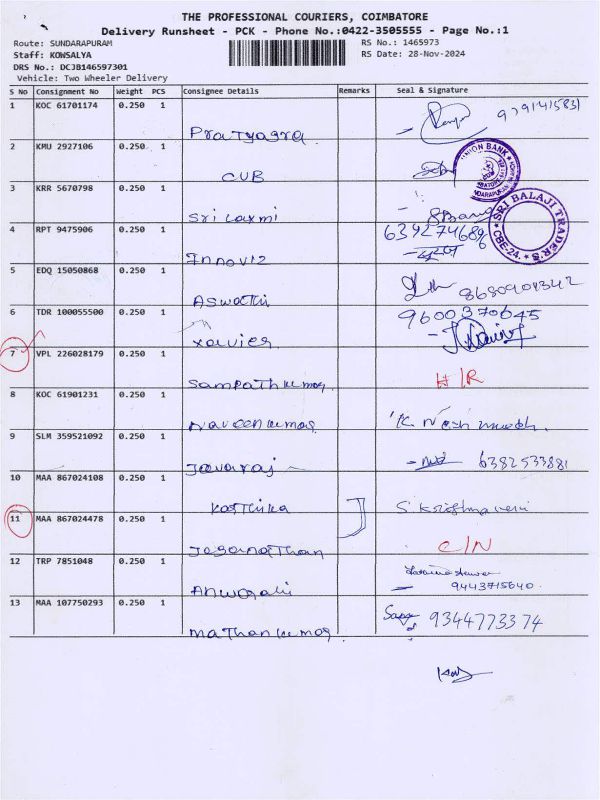 THE PROFESSIONAL COURIERS, COIMBATORE
Delivery Runsheet - PCK - Phone No.:0422-3505555 - Page No.:1
Route: SUNDARAPURAM RS No.: 1465973
Staff: KOWSALYA RS Date: 28-Nov-2024
DRS No.: DCJB146597301
Vehicle: Two Wheeler Delivery
S No Consignment No Weight PCS Consignee Details Remarks Seal & Signature
1 KOC 61701174 0.250 1
Pratyagra
2 KMU 2927106 0.250 1
CUB
UNION BANK
3 KRR 5670798 0.250 1
Sri Laxmi
SRI BALAJI TRADER'S
CBE-24.
4 RPT 9475906 0.250 1 6392746896
Innoviz
5 EDQ 15050868 0.250 1
Aswathi
6 TDR 100055500 0.250 1 9600370645
Xavier
7 VPL 226028179 0.250 1
Sampathkumar H/R
8 KOC 61901231 0.250 1
Naveenkumar
9 SLM 359521092 0.250 1 6382533881
Javaraj
10 MAA 867024108 0.250 1 S. Krishnaveni
Karthika
11 MAA 867024478 0.250 1
Jeganathan C/N
12 TRP 7851048 0.250 1 9443715640
Anwarali
13 MAA 107750293 0.250 1 9344773374
Mathankumar